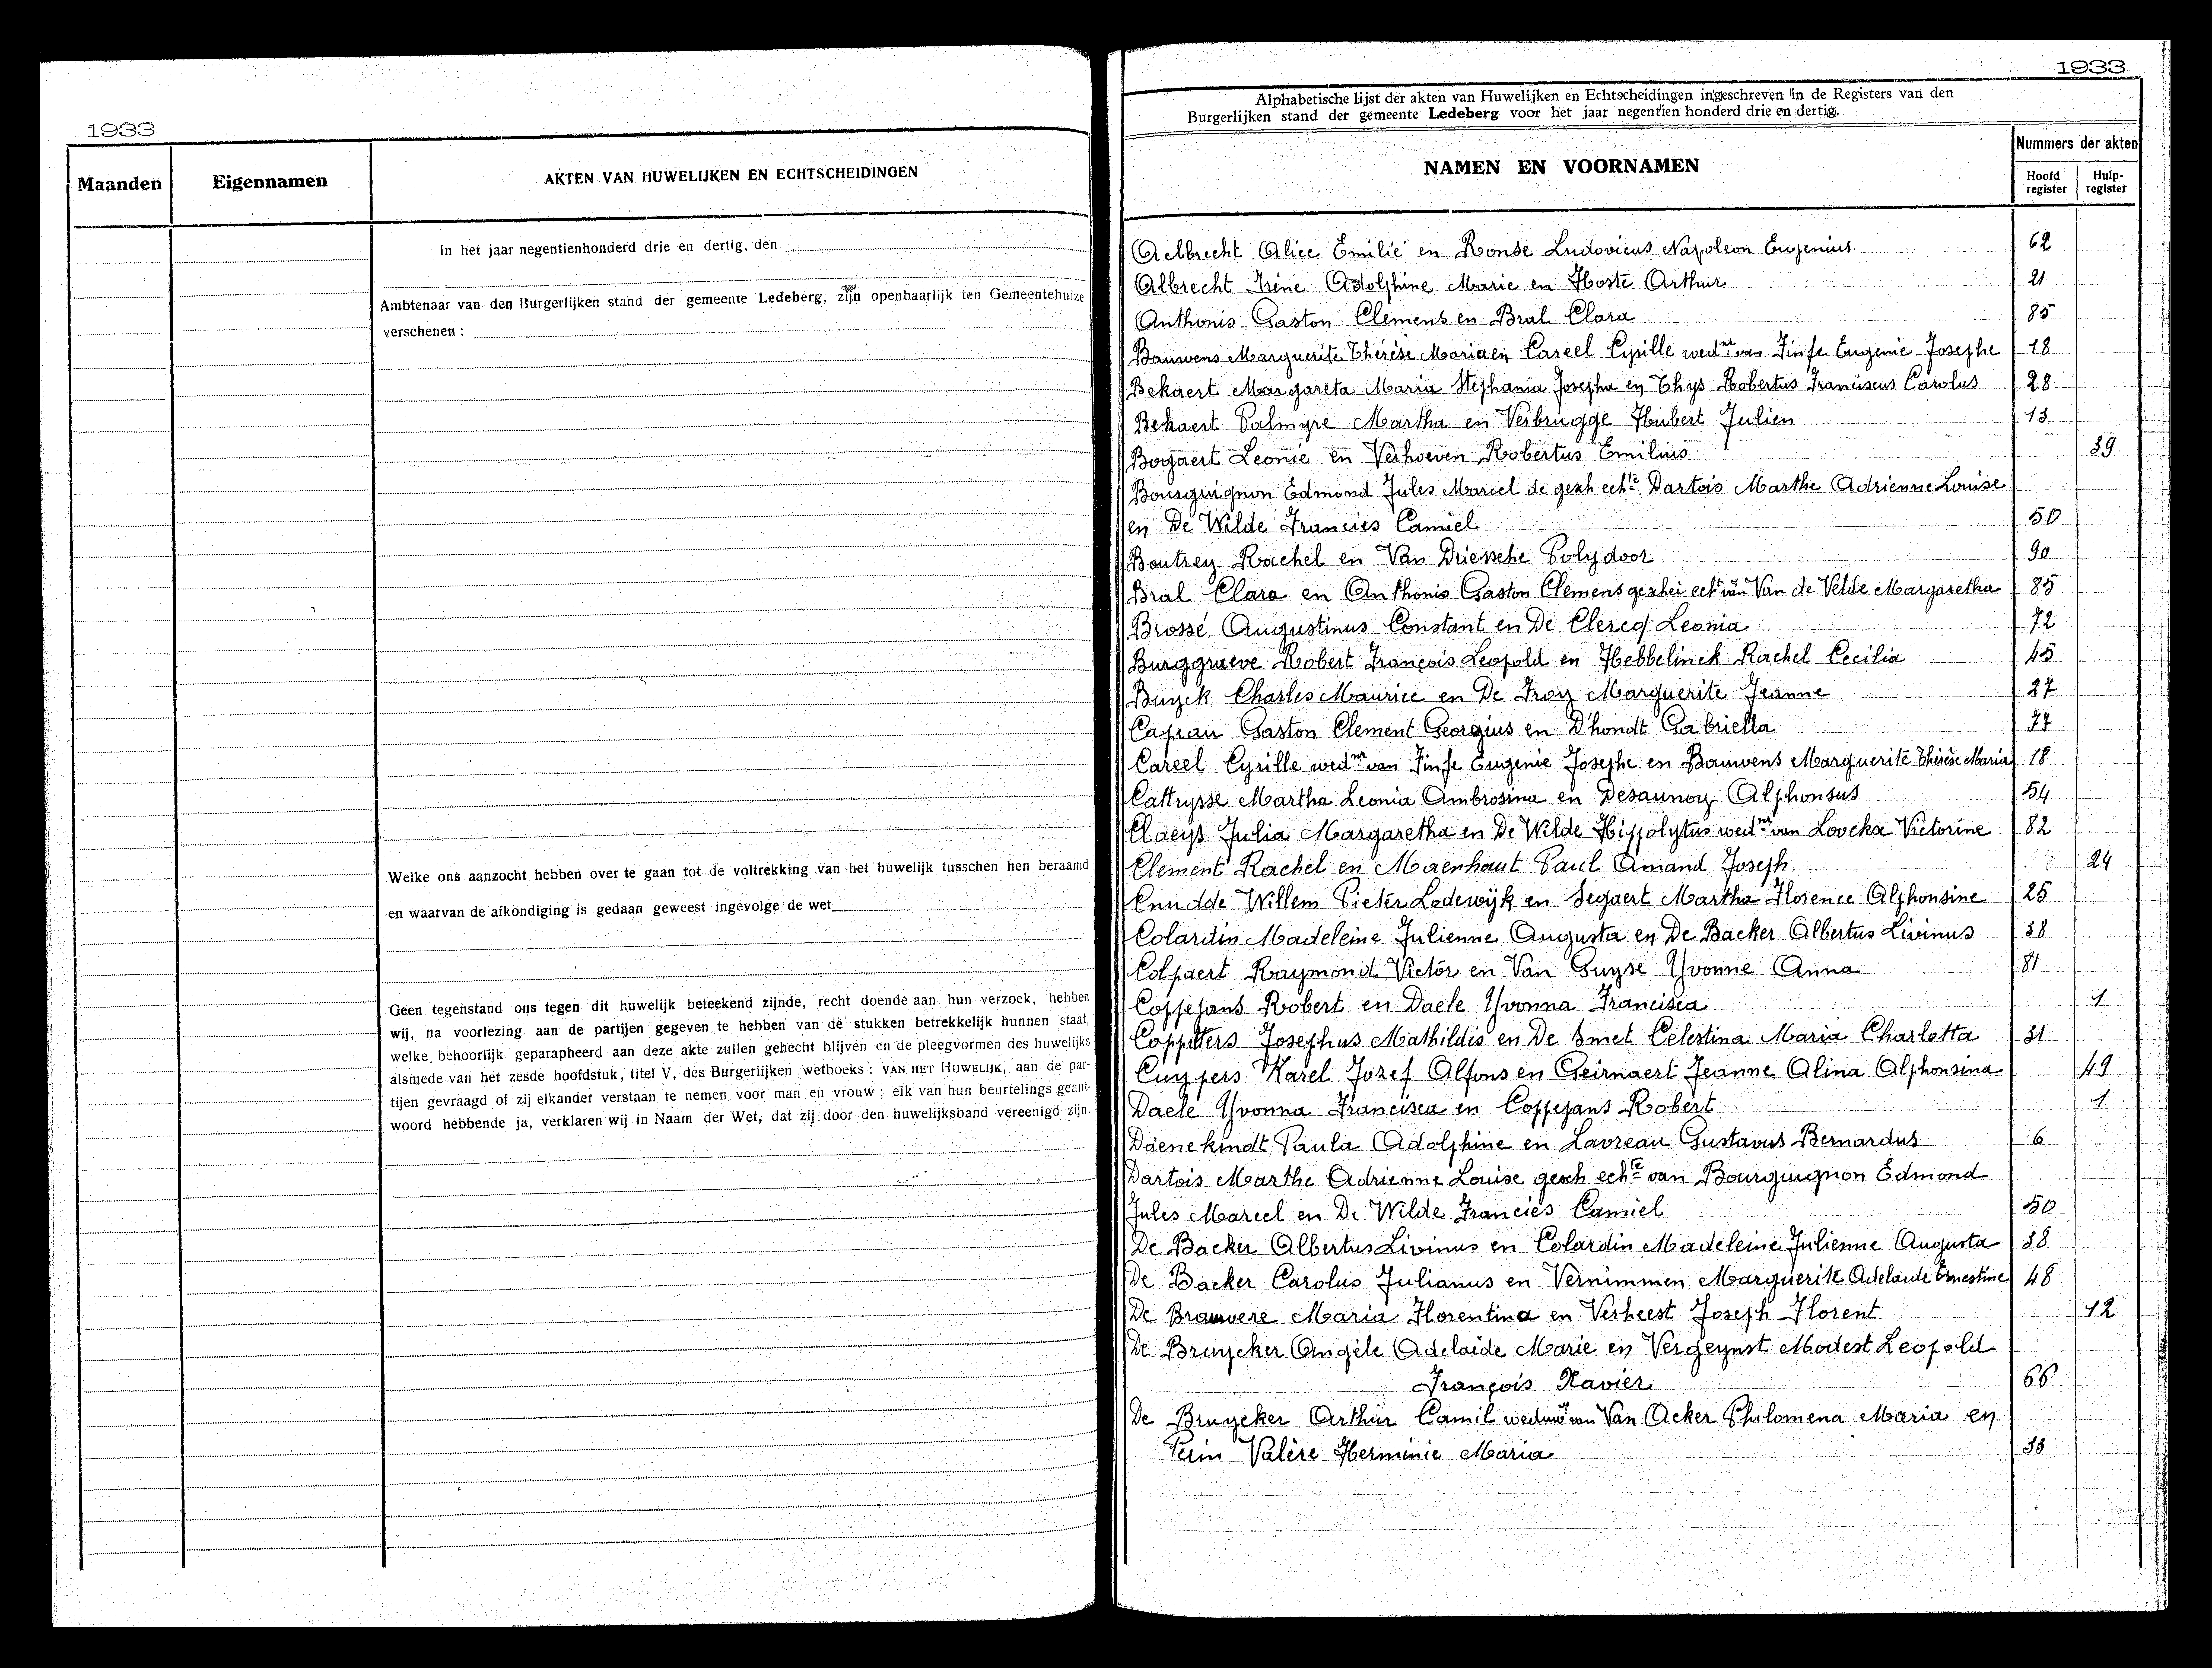 1933
Maanden Eigennamen AKTEN VAN HUWELIJKEN EN ECHTSCHEIDINGEN
In het jaar negentienhonderd drie en dertig, den
Ambtenaar van den Burgerlijken stand der gemeente Ledeberg, zijn openbaarlijk ten Gemeentehuize
verschenen :
Welke ons aanzocht hebben over te gaan tot de voltrekking van het huwelijk tusschen hen beraamd
en waarvan de afkondiging is gedaan geweest ingevolge de wet
Geen tegenstand ons tegen dit huwelijk beteekend zijnde, recht doende aan hun verzoek, hebben
wij, na voorlezing aan de partijen gegeven te hebben van de stukken betrekkelijk hunnen staat,
welke behoorlijk geparapheerd aan deze akte zullen gehecht blijven en de pleegvormen des huwelijks
alsmede van het zesde hoofdstuk, titel V, des Burgerlijken wetboeks : VAN HET HUWELIJK, aan de par-
tijen gevraagd of zij elkander verstaan te nemen voor man en vrouw ; elk van hun beurtelings geant-
woord hebbende ja, verklaren wij in Naam der Wet, dat zij door den huwelijksband vereenigd zijn.
1933
Alphabetische lijst der akten van Huwelijken en Echtscheidingen ingeschreven in de Registers van den
Burgerlijken stand der gemeente Ledeberg voor het jaar negentien honderd drie en dertig.
NAMEN EN VOORNAMEN
Nummers der akten
Hoofd register Hulp-register
Aelbrecht Alice Emilie en Ronse Ludovicus Napoleon Eugenius 62
Albrecht Irène Adolphine Marie en Hoste Arthur 21
Anthonis Gaston Clemens en Bral Clara 85
Bauwens Marguerite Thérèse Maria en Careel Cyrille wed.nr van Finfe Eugenie Josephe 18
Bekaert Margareta Maria Stephania Josepha en Thys Robertus Franciscus Carolus 28
Bekaert Palmyre Martha en Verbrugge Hubert Julien 13
Bogaert Leonie en Verhoeven Robertus Emilius 39
Bourguignon Edmond Jules Marcel de gesch echte Dartois Marthe Adrienne Louise
en De Wilde Francies Camiel 50
Boutrey Rachel en Van Driessche Polydoor 90
Bral Clara en Anthonis Gaston Clemens geschei echt van Van de Velde Margaretha 85
Brossé Augustinus Constant en De Clercq Leonia 72
Burggraeve Robert François Leopold en Hebbelinck Rachel Cecilia 45
Buyck Charles Maurice en De Troy Marguerite Jeanne 27
Capiau Gaston Clement Georgius en D'hondt Gabriella 77
Careel Cyrille wed.nr van Finfe Eugenie Josephe en Bauwens Marguerite Thérèse Maria 18
Cattrysse Martha Leonia Ambrosina en Desaunoy Alphonsus 54
Claeys Julia Margaretha en De Wilde Hippolytus wed.nr van Lovcka Victorine 82
Clement Rachel en Maenhaut Paul Amand Joseph 24
Cnudde Willem Pieter Lodewijk en Segaert Martha Florence Alphonsine 25
Colardin Madeleine Julienne Augusta en De Backer Albertus Livinus 38
Colpaert Raymond Victor en Van Guyse Yvonne Anna 81
Coppejans Robert en Daele Yvonna Francisca 1
Coppitters Josephus Mathildis en De Smet Celestina Maria Charlotta 31
Cuypers Karel Jozef Alfons en Geirnaert Jeanne Alina Alphonsina 49
Daele Yvonna Francisca en Coppejans Robert 1
Daenekindt Paula Adolphine en Lavreau Gustavus Bernardus 6
Dartois Marthe Adrienne Louise gesch echte van Bourguignon Edmond
Jules Marcel en De Wilde Francies Camiel 50
De Backer Albertus Livinus en Colardin Madeleine Julienne Augusta 38
De Backer Carolus Julianus en Vernimmen Marguerite Adelaide Ernestine 48
De Brauwere Maria Florentina en Verheest Joseph Florent 12
De Bruycker Angèle Adelaide Marie en Vergeynst Modest Leopold
François Xavier 66
De Bruycker Arthur Camil weduwr van Van Acker Philomena Maria en
Perin Valère Herminie Maria 33